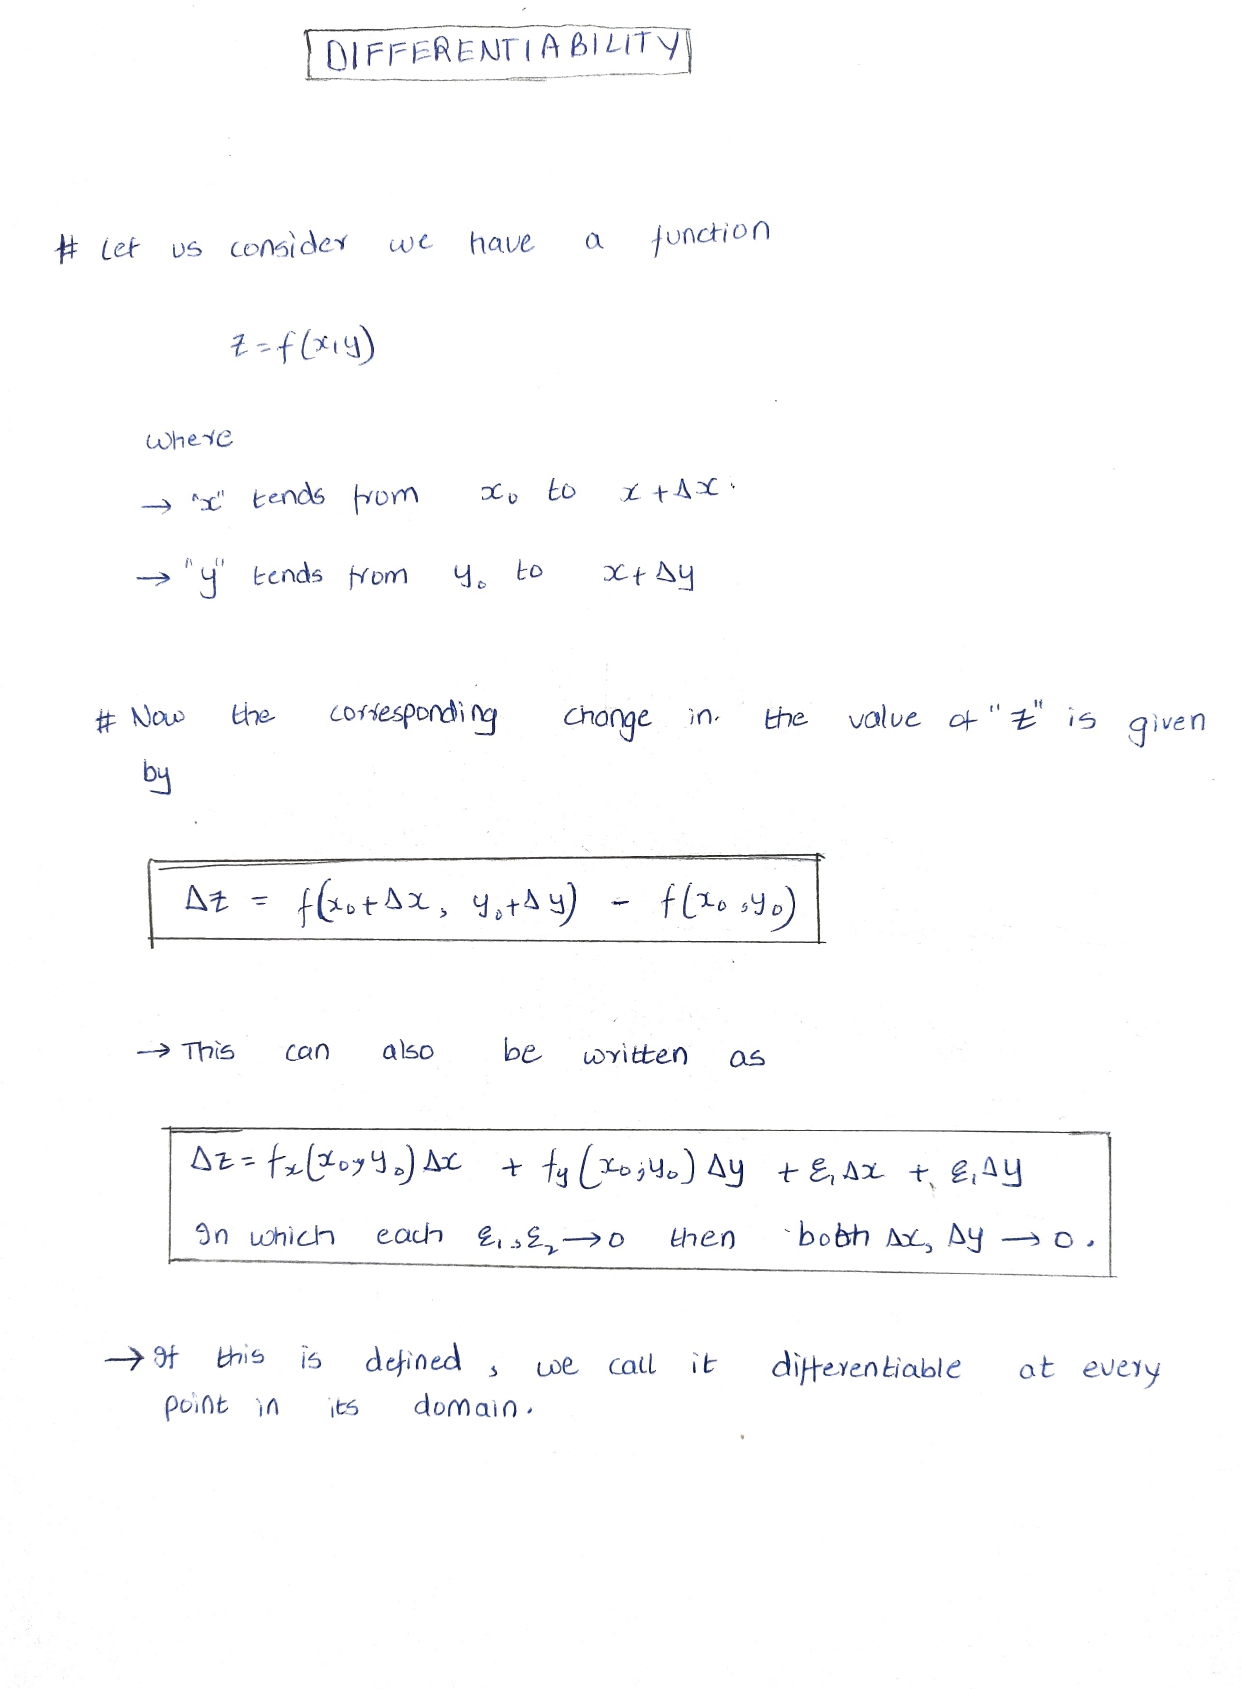 DIFFERENTIABILITY
# Let us consider we have a function
z = f(x,y)
where
→ "x" tends from x₀ to x + Δx.
→ "y" tends from y₀ to x + Δy
# Now the corresponding change in the value of "z" is given
by
Δz = f(x₀+Δx, y₀+Δy) - f(x₀,y₀)
→ This can also be written as
Δz = fₓ(x₀,y₀) Δx + fy (x₀,y₀) Δy + ε₁Δx + ε₁Δy
In which each ε₁,ε₂→0 then both Δx, Δy → 0.
→ If this is defined, we call it differentiable at every
point in its domain.